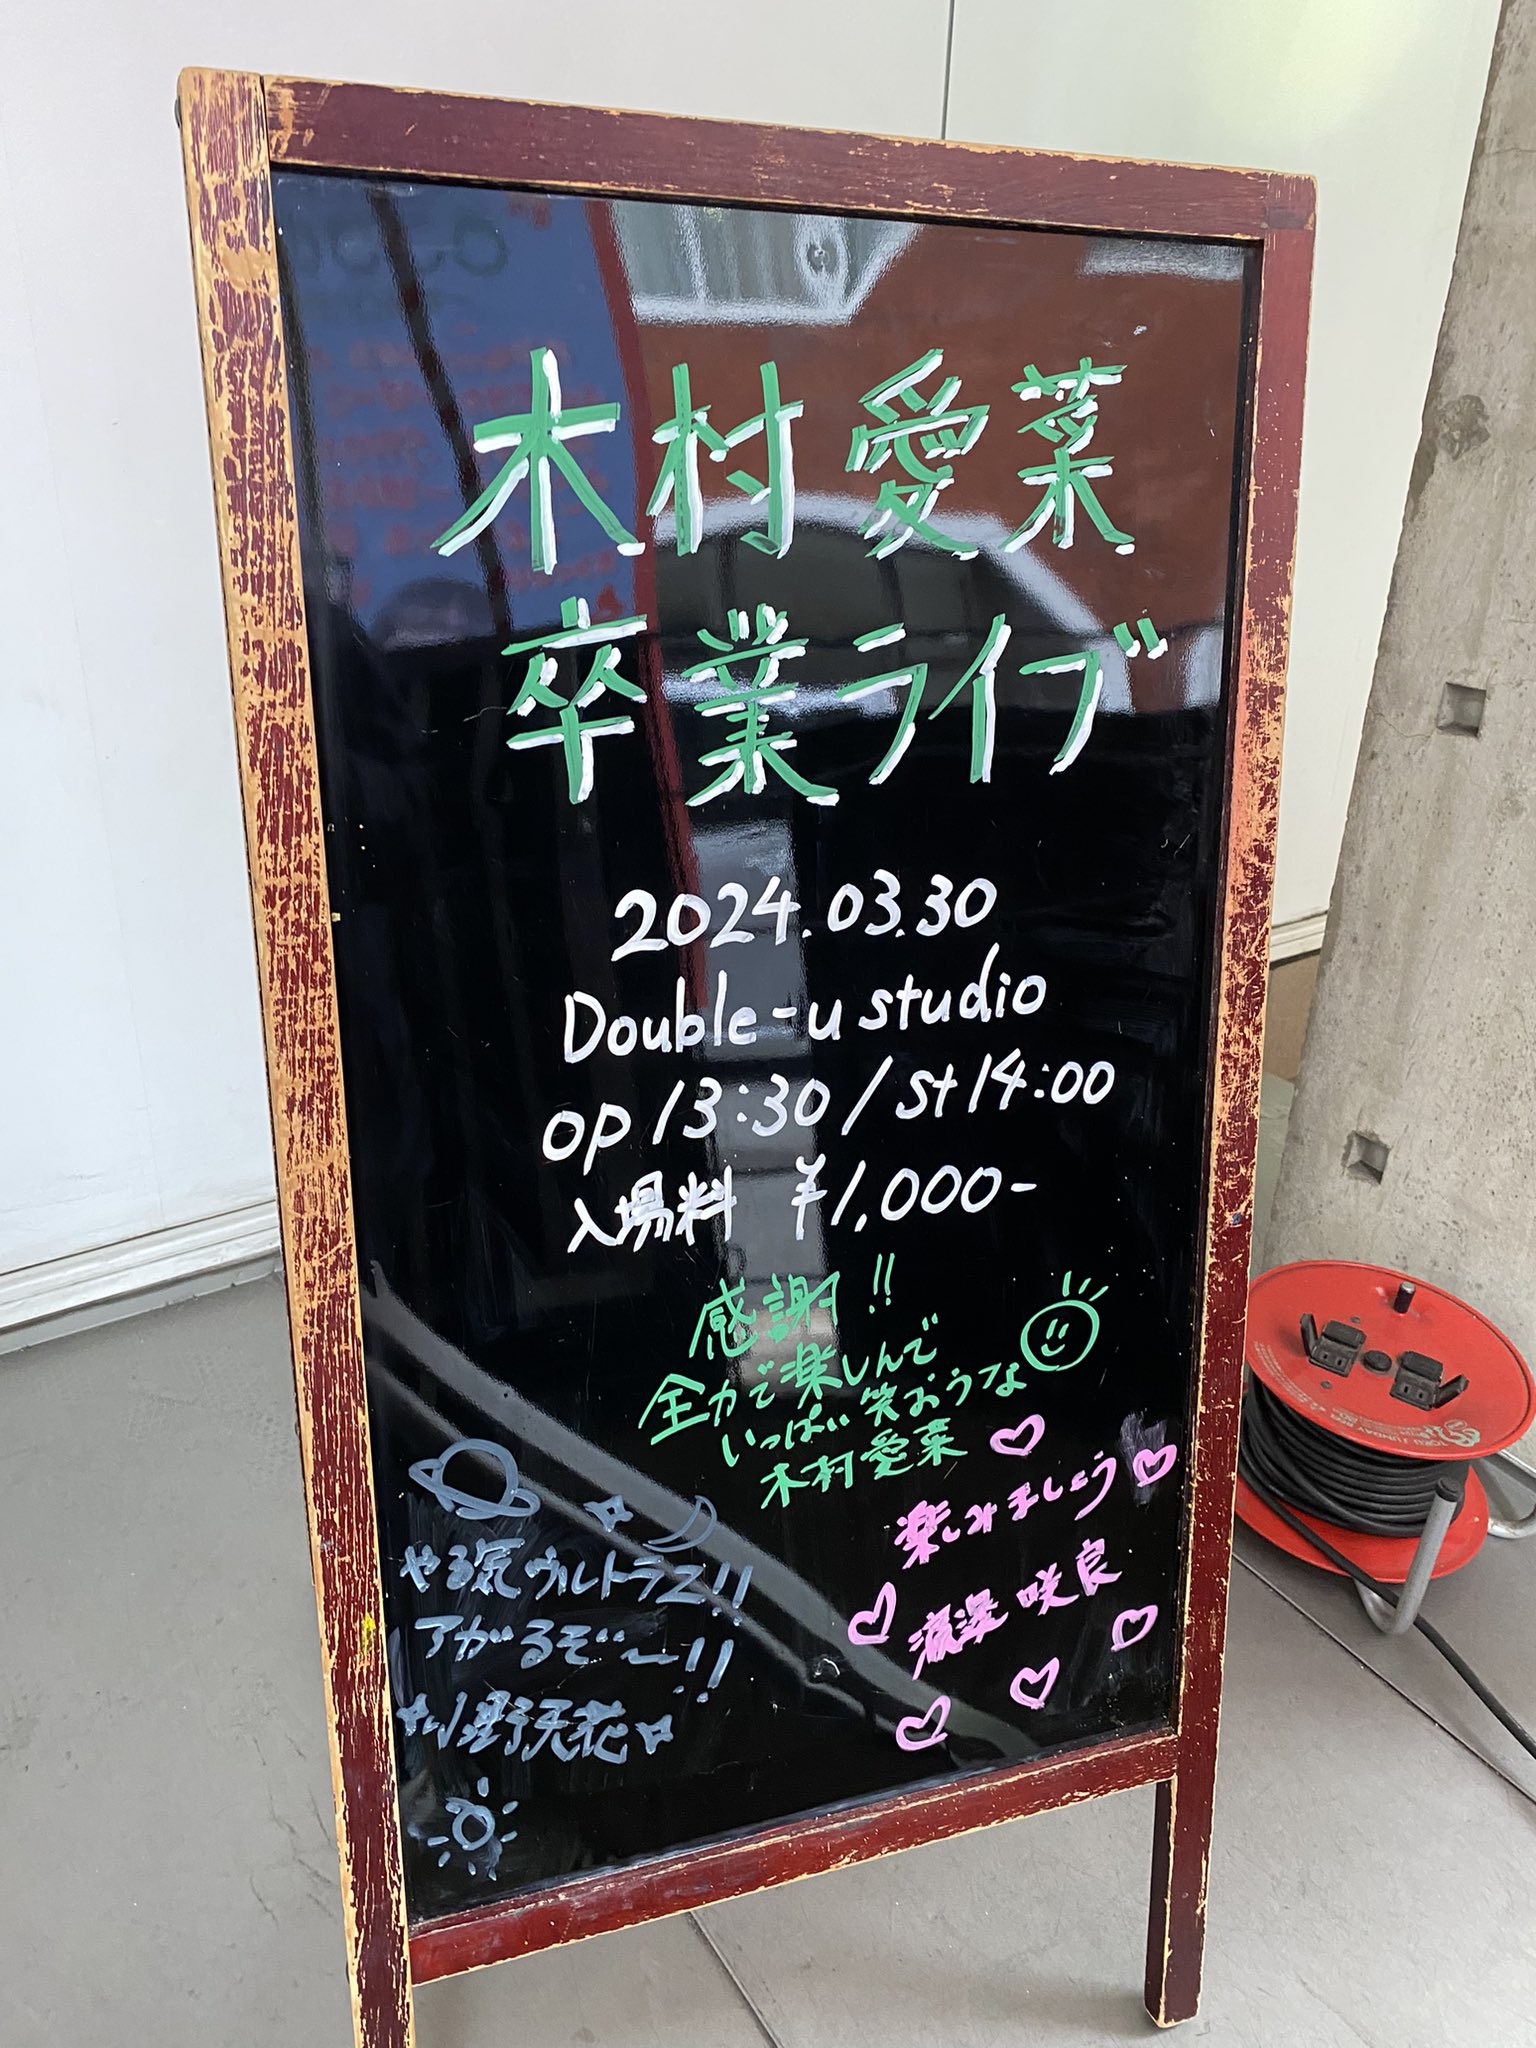 木村愛菜
卒業ライブ
2024.03.30
Double-u studio
op 13:30 / st 14:00
入場料 ¥1,000-
感謝!!
全力で楽しんで
いっぱい笑おうな
木村愛菜
楽しみましょう
咲良
やる気ウルトラZ!!
アガるぞ〜!!
野天花